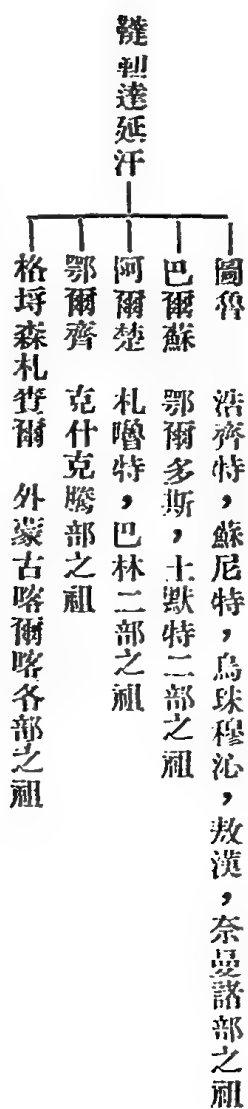 韃靼達延汗
圖魯 浩齊特,蘇尼特,烏珠穆沁,敖漢,奈曼諸部之祖
巴爾蘇 鄂爾多斯,土默特二部之祖
阿爾楚 札嚕特,巴林二部之祖
鄂爾齊 克什克騰部之祖
格埒森札賚爾 外蒙古喀爾喀各部之祖